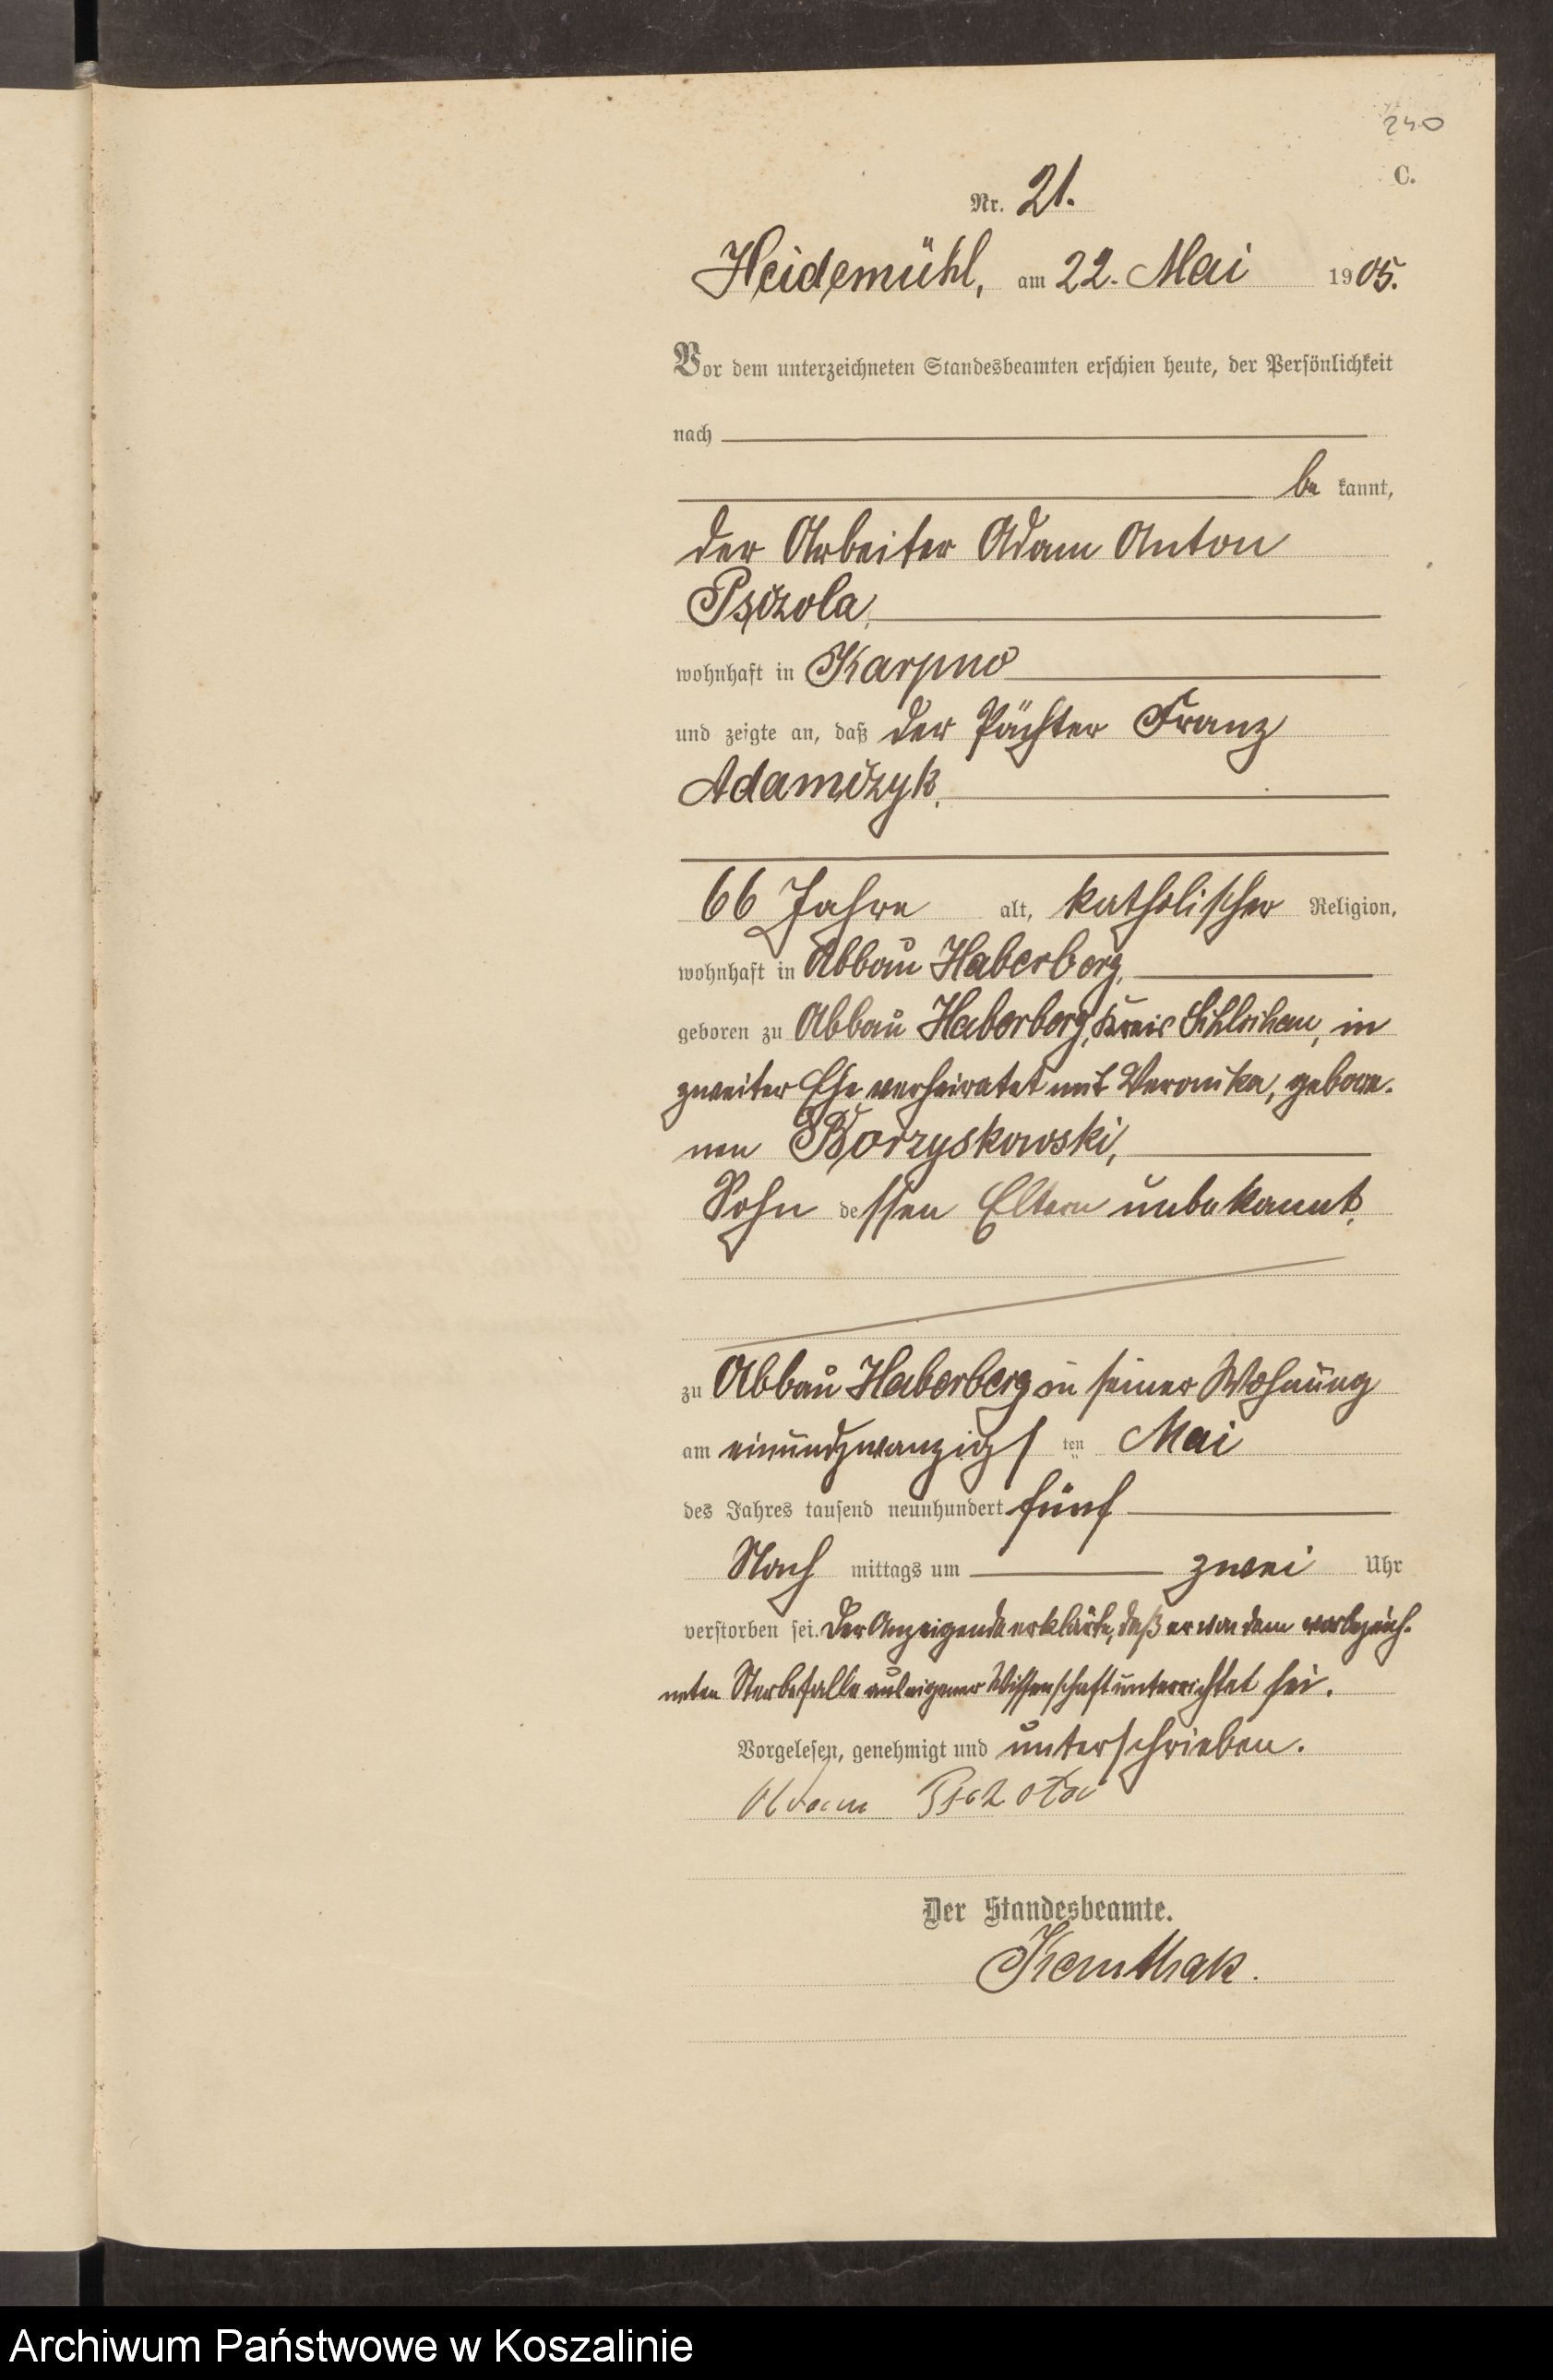 240
C.
Nr. 21.
Heidemühl, am 22. Mai 1905.
Vor dem unterzeichneten Standesbeamten erschien heute, der Persönlichkeit
nach
be kannt,
der Arbeiter Adam Anton
wohnhaft in Karpno
und zeigte an, daß der Pächter Franz
Adamczyk,
66 Jahre alt, katholischer Religion,
wohnhaft in Abbau Haberberg,
geboren zu Abbau Haberberg, Kreis Schlochau, in
zweiter Ehe verheiratet mit Veronika, gebore-
nen Borzyskowski,
Sohn dessen Eltern unbekannt,
zu Abbau Haberberg in seiner Wohnung
am einundzwanzigsten Mai
des Jahres tausend neunhundert fünf
Nach mittags um zwei Uhr
verstorben sei. Der Anzeigende erklärte, daß er von dem vorbezeich-
neten Sterbefalle aus eigener Wissenschaft unterrichtet sei.
Vorgelesen, genehmigt und unterschrieben.
Adam
Der Standesbeamte.
Archiwum Państwowe w Koszalinie